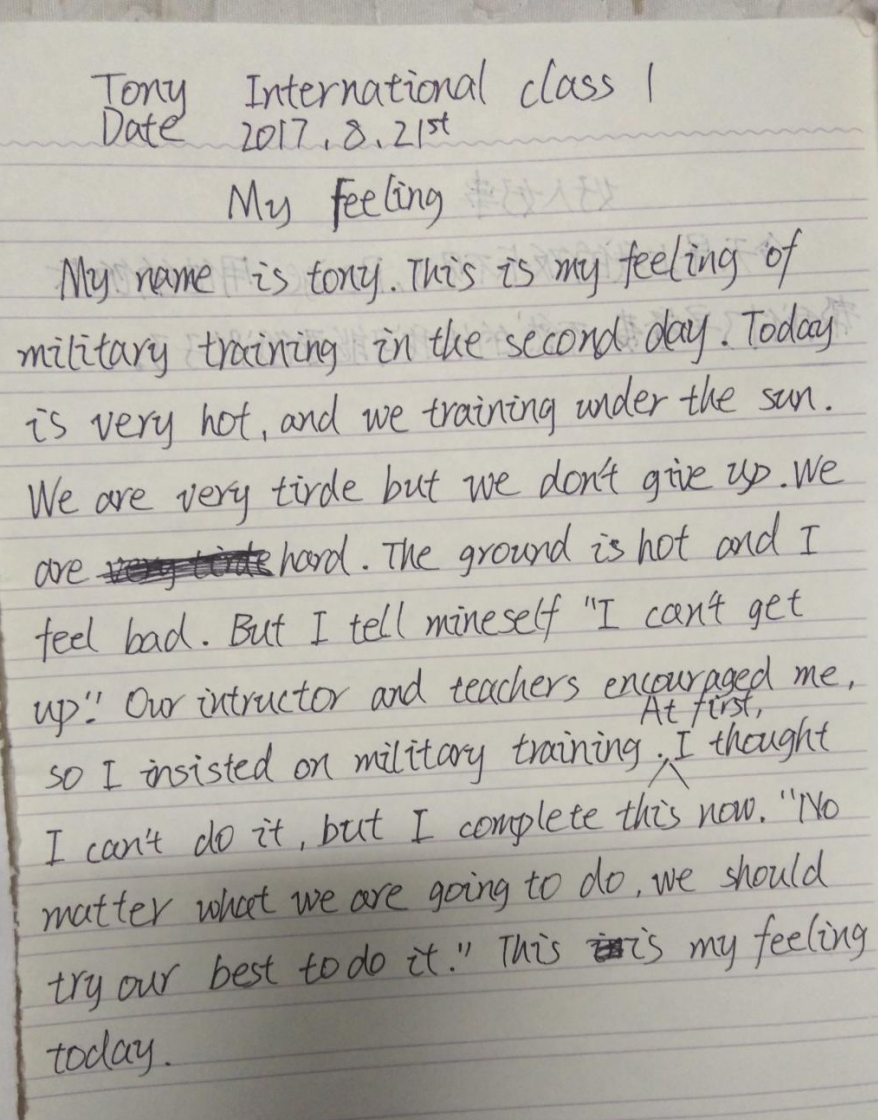 Tony International class 1
Date 2017.8.21st
My feeling
My name is tony. This is my feeling of
military training in the second day. Today
is very hot, and we training under the sun.
We are very tirde but we don't give up. We
are hard. The ground is hot and I
feel bad. But I tell mineself "I can't get
up". Our intructor and teachers encouraged me,
At first,
so I insisted on military training. I thought
I can't do it, but I complete this now. "No
matter what we are going to do, we should
try our best to do it." This is my feeling
today.